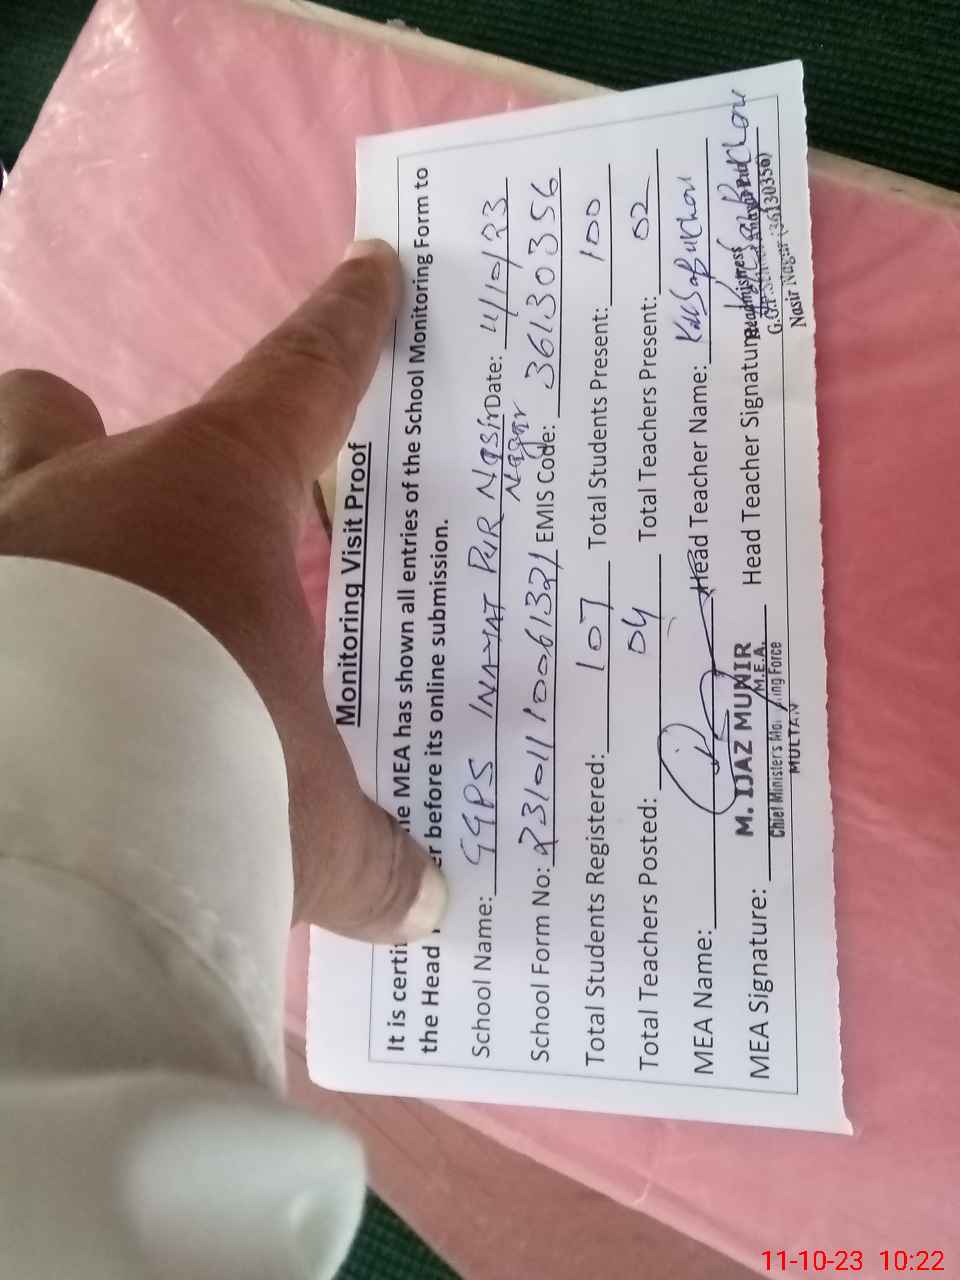 Monitoring Visit Proof
It is certi he MEA has shown all entries of the School Monitoring Form to
the Head er before its online submission.
School Name: GGPS INAYAT PUR Nasir Nagar Date: 11/10/23
School Form No: 23101110061321 EMIS Code: 36130356
Total Students Registered: 107 Total Students Present: 100
Total Teachers Posted: 04 Total Teachers Present: 02
MEA Name: Head Teacher Name:
M. IJAZ MUNIR
M.E.A.
MEA Signature: Head Teacher Signature
Chief Minister's Mo ing Force
MULTAN
Headmistress
Nasir Nagar (36130356)
11-10-23 10:22